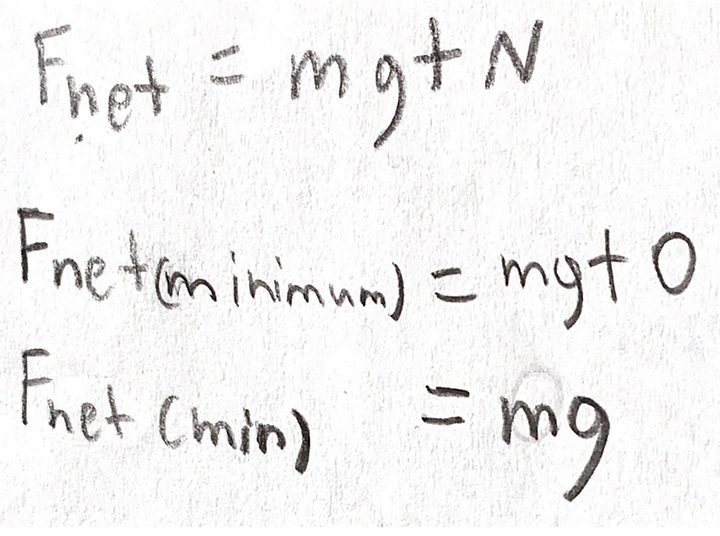 Fnet = mg + N
Fnet (minimum) = mg + 0
Fnet (min) = mg